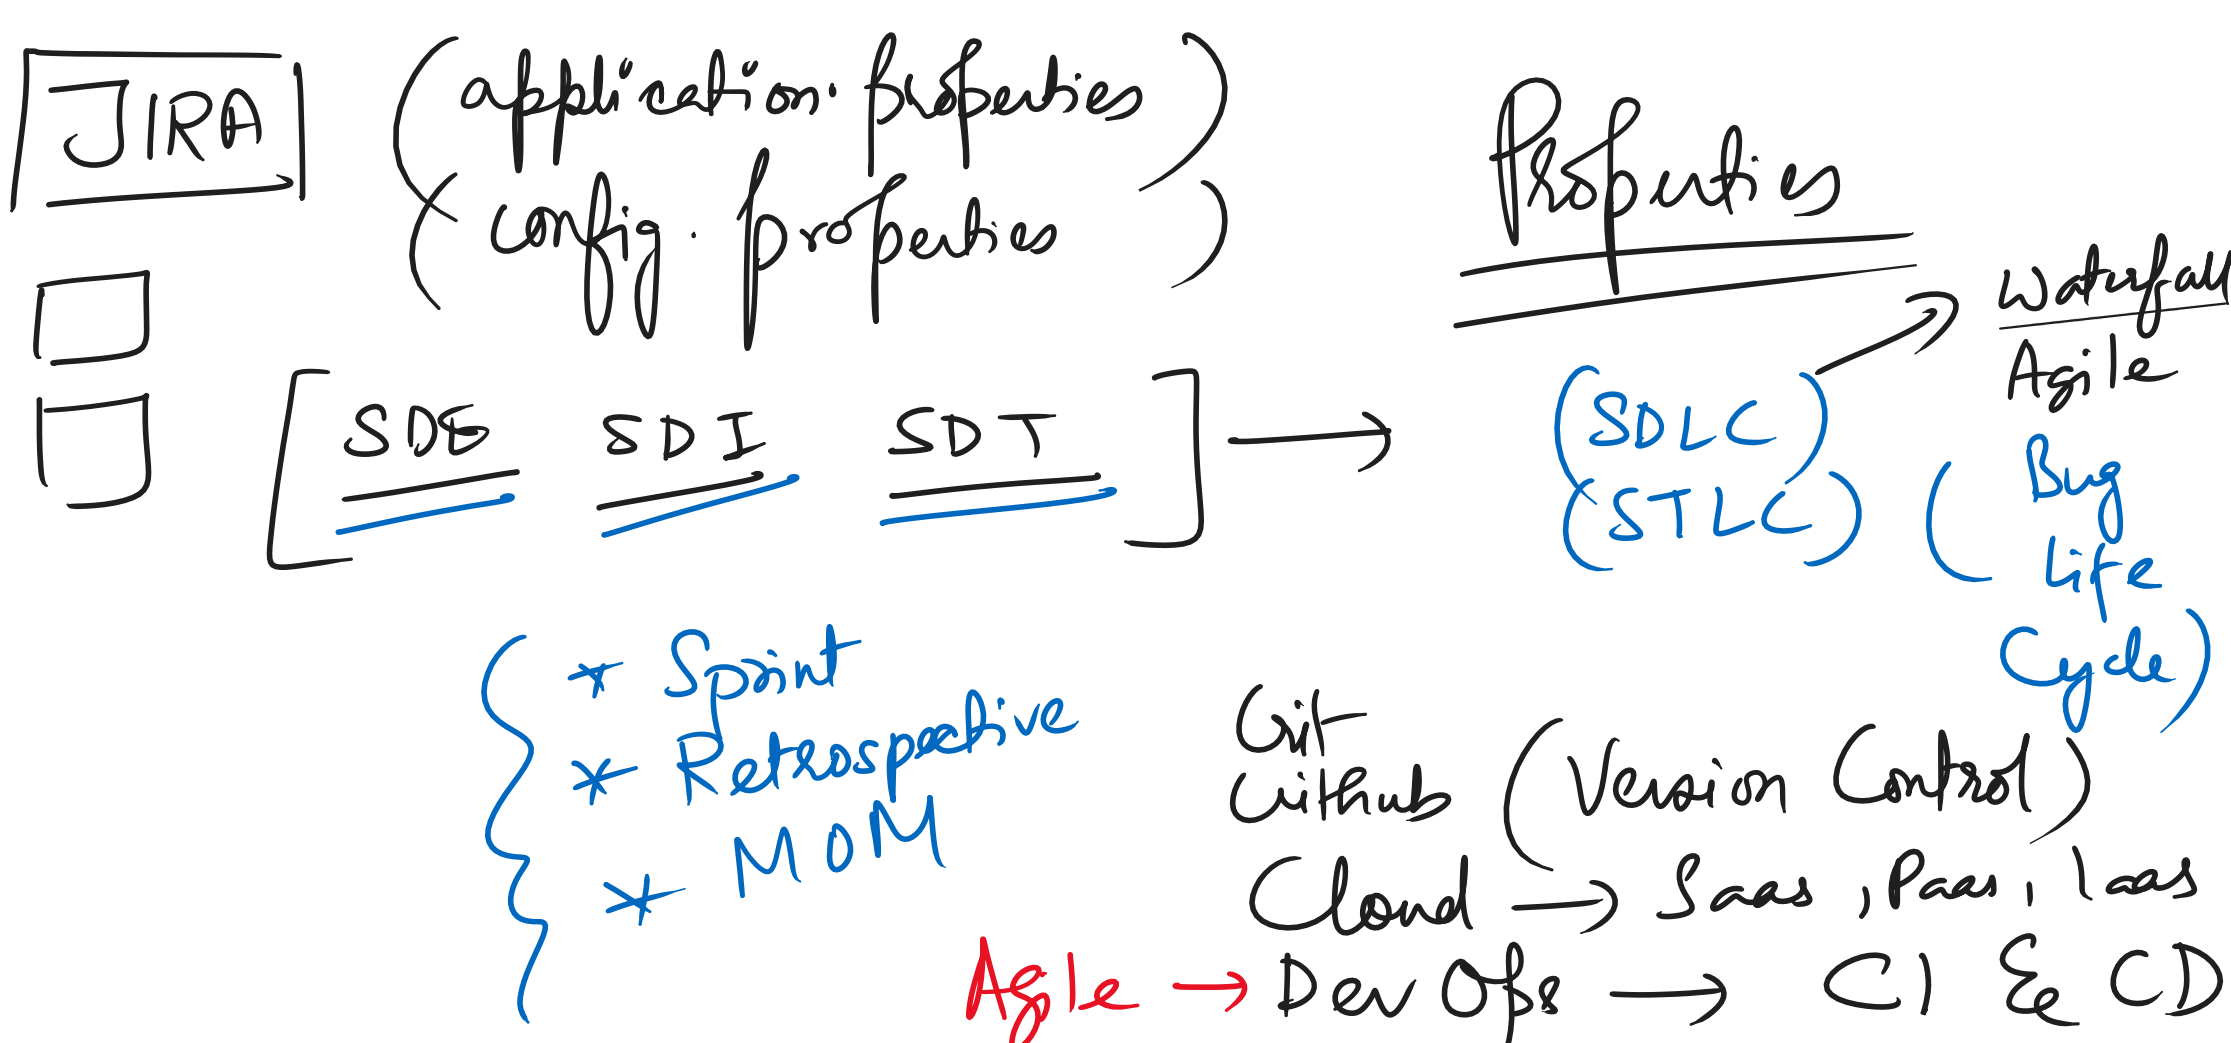 JIRA
(application.properties)
(config.properties)
Properties
[SDE SDI SDT] →
(SDLC)
(STLC)
Waterfall
Agile
(Bug
Life
Cycle)
{* Sprint
* Retrospective
* MOM
Git
Github
(Version Control)
Cloud → Saas, Paas, Iaas
Agile → DevOps → CI & CD